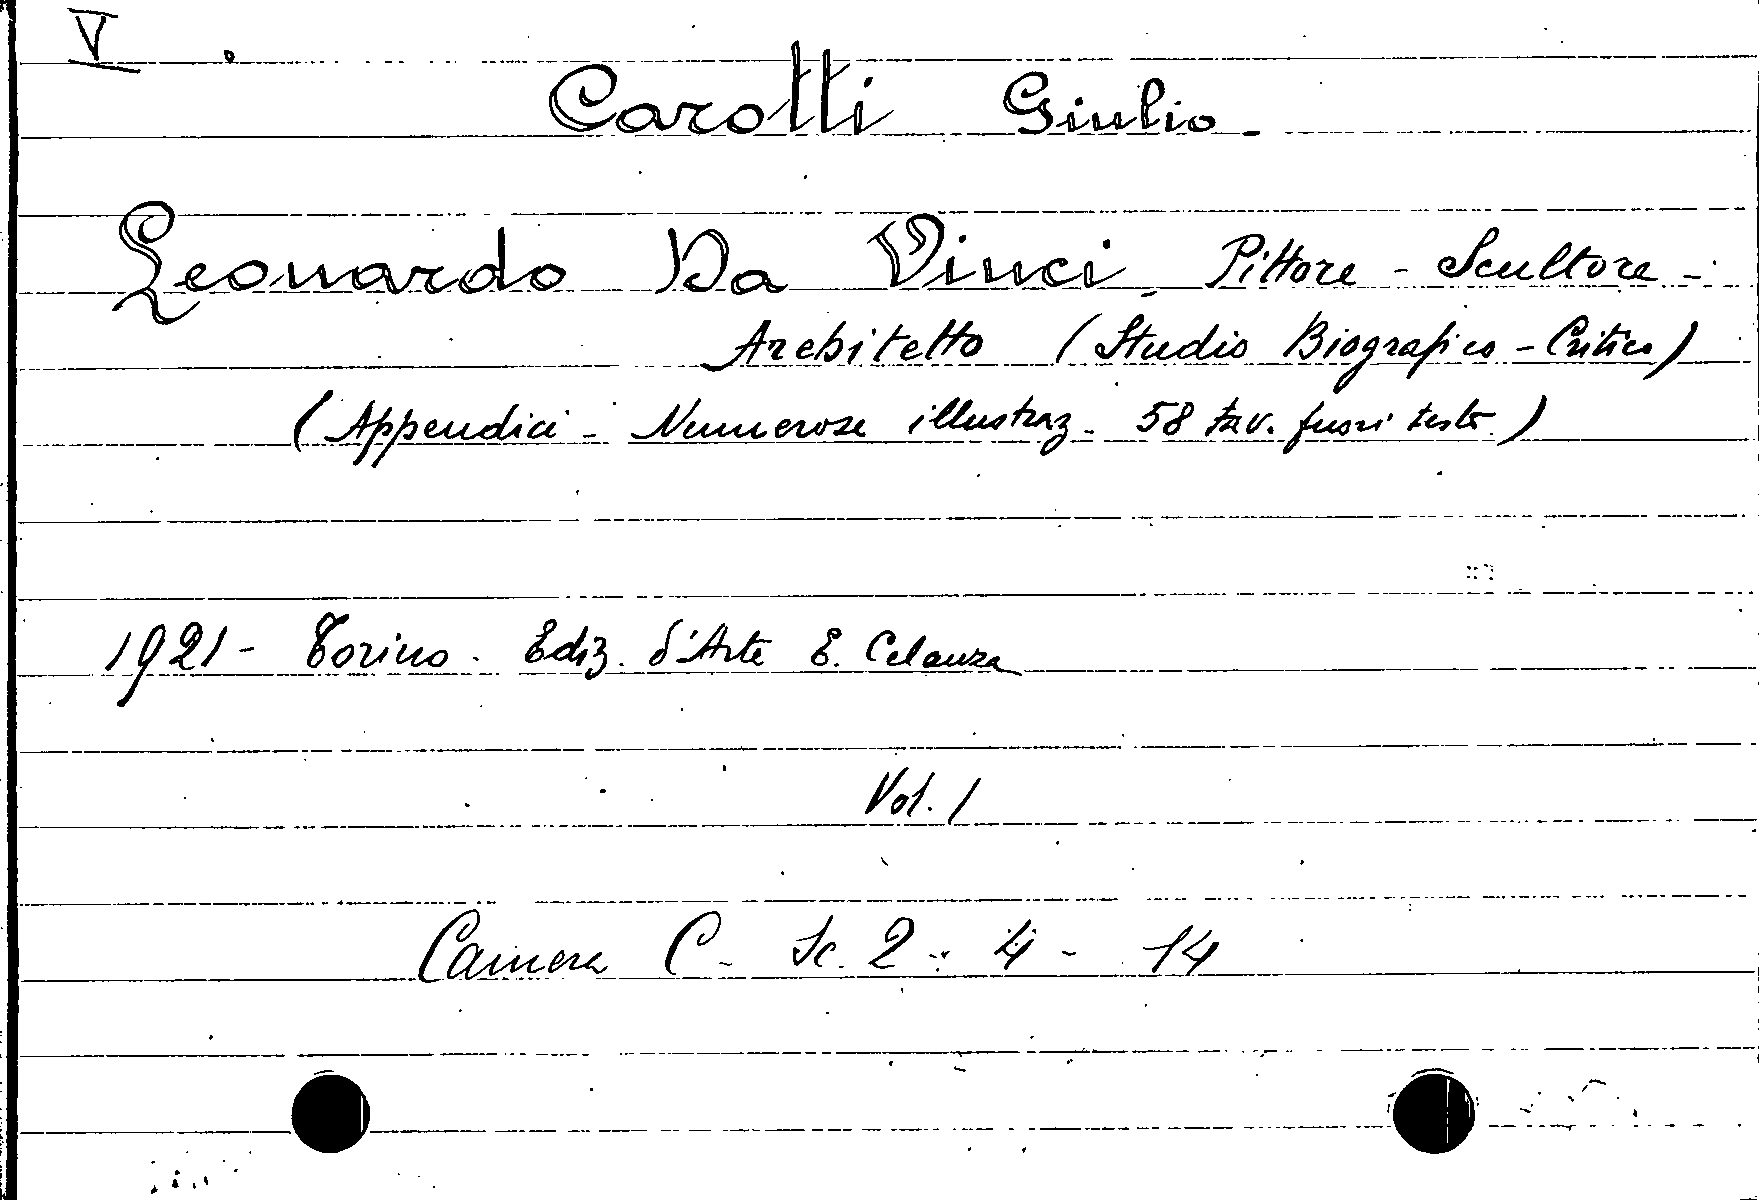 V
Carotti Giulio -
Leonardo Da Vinci - Pittore - Scultore -
Architetto (Studio Biografico - Critico)
(Appendici - Numerose illustraz. 58 tav. fuori testo.)
1921 - Torino. Ediz. d'Arte E. Celanza
Vol. 1
Camera C - Sc. 2 - 4 - 14